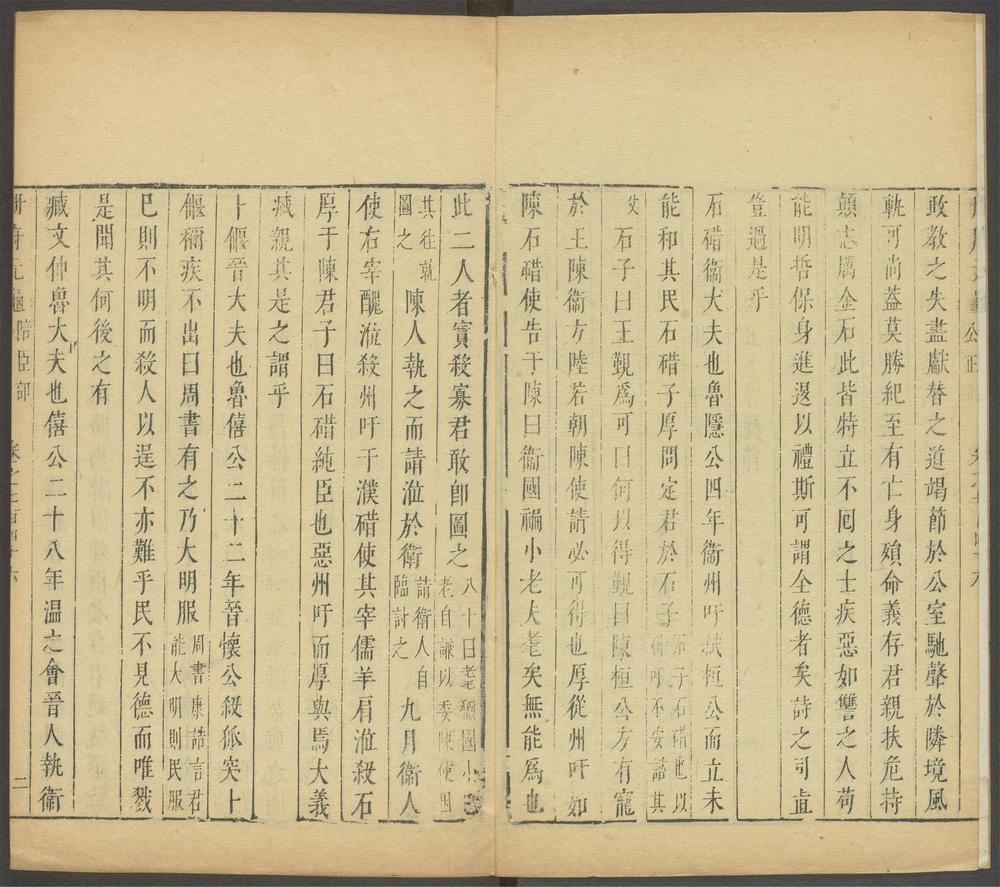 册府元龜公正
政教之失盡獻替之道竭節於公室馳聲於隣境風
軌可尚葢莫勝紀至有亡身殞命義存君親扶危持
顛志厲金石此皆特立不囘之士疾惡如讐之人荷
能明哲保身進退以禮斯可謂全德者矣詩之司直
豈過是乎
石碏衞大夫也魯隱公四年衞州吁弑桓公而立未
能和其民石碏子厚問定君於石子石子石碏也以州吁不安諮其
父石子曰王覲爲可曰何以得覲曰陳桓公方有寵
於王陳衞方睦若朝陳使請必可得也厚從州吁如
陳石碏使告于陳曰衞國褊小老夫耄矣無能爲也
此二人者實殺寡君敢卽圖之八十曰耄稱國小老自謙以委陳使因
其往就圖之陳人執之而請涖於衞請衞人自臨討之九月衞人
使右宰醜涖殺州吁于濮碏使其宰儒羊肩涖殺石
厚于陳君子曰石碏純臣也惡州吁而厚與焉大義
滅親其是之謂乎
卜偃晉大夫也魯僖公二十二年晉懷公殺狐突卜
偃稱疾不出曰周書有之乃大明服周書康誥言君能大明則民服
巳則不明而殺人以逞不亦難乎民不見德而唯戮
是聞其何後之有
臧文仲魯大夫也僖公二十八年温之會晉人執衞
册府元龜陪臣部 卷之七百四十六 二